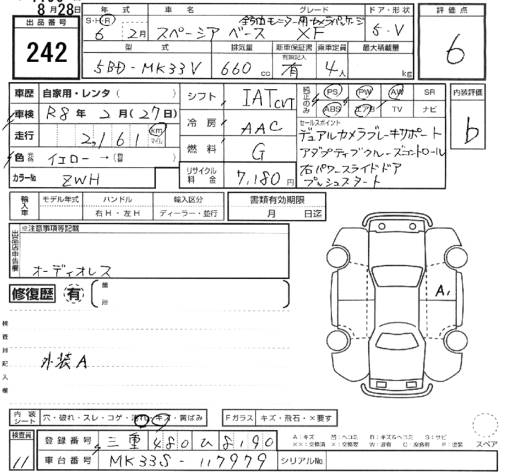 8月28日
出品番号
242
年式
S・H・R
6年 2月
車名
スペーシア ベース
グレード
全方位モニター用カメラパッケージ
XF
ドア・形状
5・V
評価点
6
型式
5BD-MK33V
排気量
660 cc
新車保証書
有
乗車定員
4人
最大積載量
kg
車歴
自家用・レンタ
車検
R8年 2月(27日)
走行
2,161
km
マイル
色
イエロー→
カラーNo
ZWH
シフト
IAT CVT
冷房
AAC
燃料
G
リサイクル料金
7,180円
純正のみ
PS PW AW SR
ABS エアB TV ナビ
セールスポイント
デュアルカメラブレーキサポート
アダプティブクルーズコントロール
右パワースライドドア
プッシュスタート
内装評価
b
輸入車
モデル年式
ハンドル
右H・左H
輸入区分
ディーラー・並行
書類有効期限
月 日迄
出品店申告欄
※注意事項等記載
オーディオレス
修復歴
有
箇所
検査員記入欄
外装A
A1
内装シート
穴・破れ・スレ・コゲ・汚れ・キズ・黄ばみ
Fガラス
キズ・飛石・×要す
検査員
11
登録番号
三重 480 ひ 8190
車台番号
MK33S-117979
シリアルNo
スペア